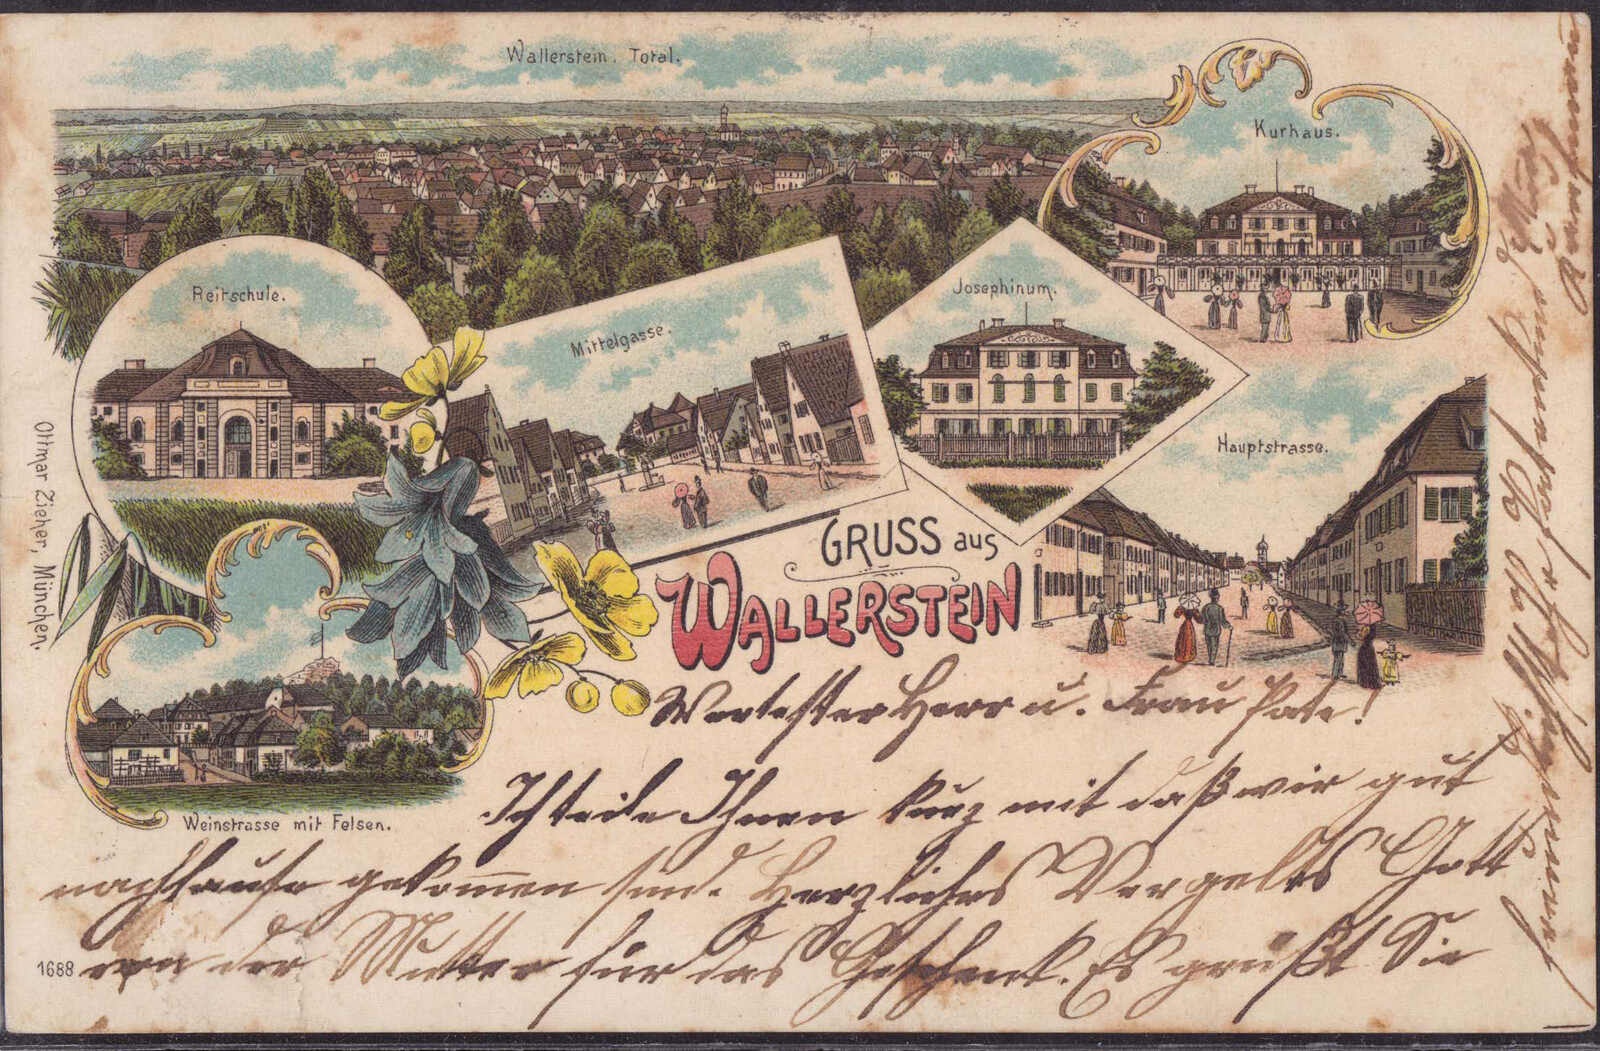 Wallerstein. Total.
Kurhaus.
Reitschule.
Mittelgasse.
Josephinum.
Hauptstrasse.
Weinstrasse mit Felsen.
GRUSS aus
WALLERSTEIN
Ottmar Zieher, München.
1688
Wertester Herr u. Frau Pate!
Ich teile Ihnen kurz mit daß wir gut
nachhause gekommen sind. Herzliches Vergelts Gott
von der Mutter für das Geschenk. Es grüßt Sie